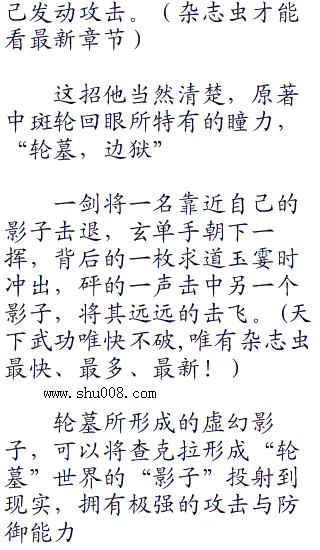 己发动攻击。（杂志虫才能
看最新章节）
这招他当然清楚，原著
中斑轮回眼所特有的瞳力，
“轮墓，边狱”
一剑将一名靠近自己的
影子击退，玄单手朝下一
挥，背后的一枚求道玉霎时
冲出，砰的一声击中另一个
影子，将其远远的击飞。(天
下武功唯快不破,唯有杂志虫
最快、最多、最新！)
www.shu008.com
轮墓所形成的虚幻影
子，可以将查克拉形成“轮
墓”世界的“影子”投射到
现实，拥有极强的攻击与防
御能力